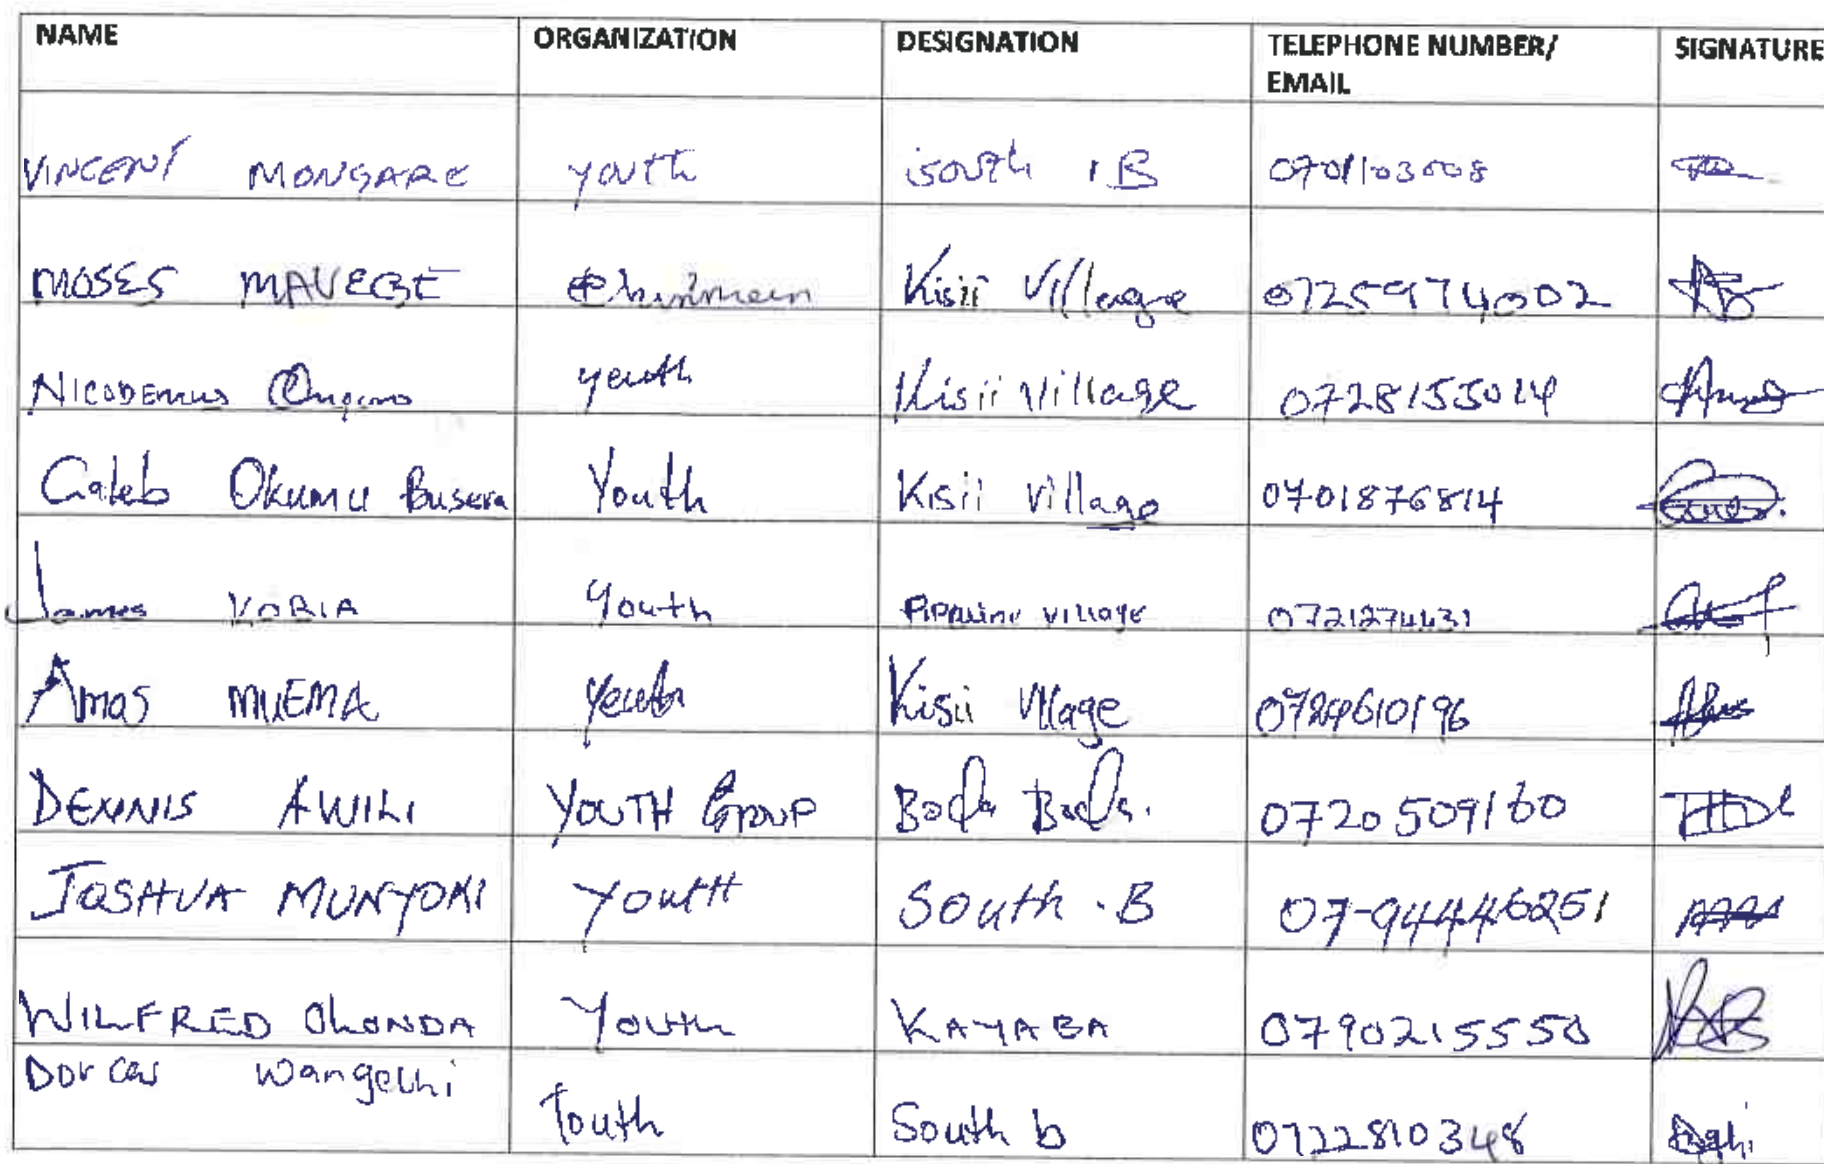 NAME ORGANIZATION DESIGNATION TELEPHONE NUMBER/ EMAIL SIGNATURE
VINCENT MONGARE youth south B 0701103008
MOSES MAVEGE Chairman Kisii Village 0725974002
NICODEMUS youth Kisii Village 0728155014
Caleb Okumu Busera Youth Kisii Village 0701876814
James KOBIA Youth Village 0721274431
Amas MUEMA Youth Kisii Village 0724610196
DENNIS AWILI YOUTH GROUP Boda Boda. 0720509160
JOSHUA MUNYOKI YOUTH South .B 07-94446251
WILFRED OLONDA Youth KAYABA 0790215550
Dorcas Wangechi Youth South b 0722810348